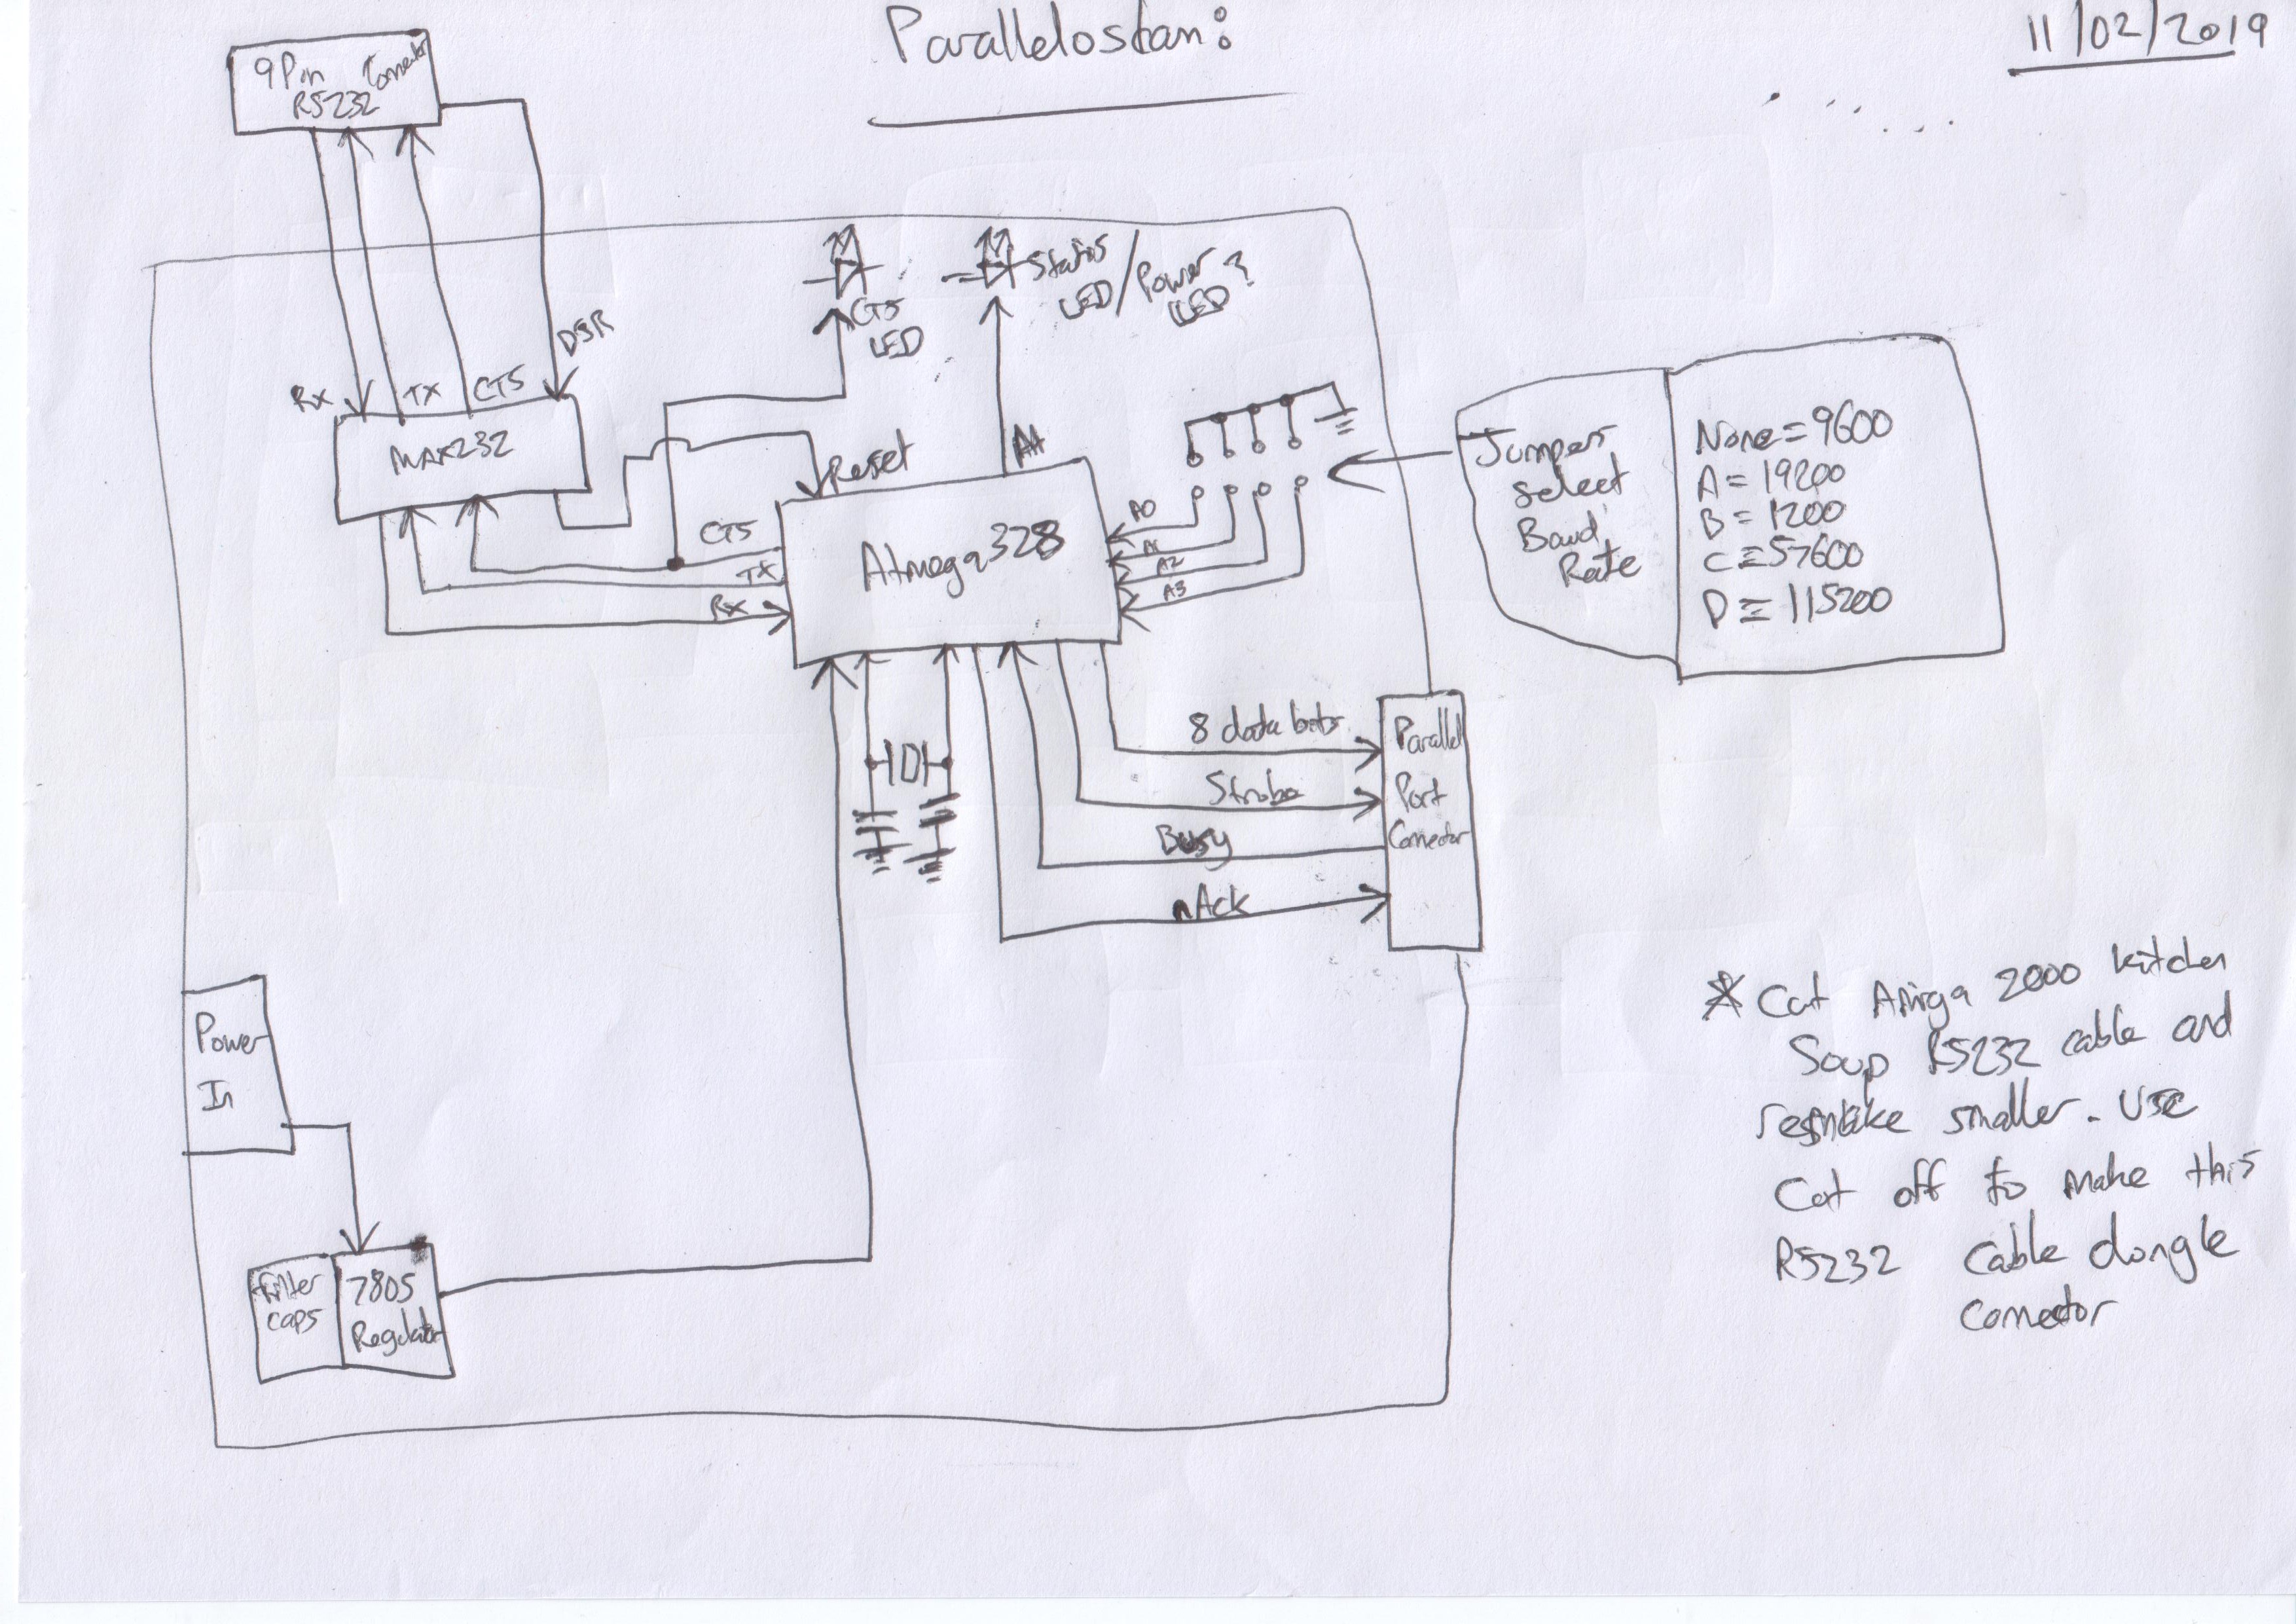 Parallelostan:
11/02/2019
9 Pin Connector
RS232
Rx
TX
CTS
DSR
MAX232
CTS
LED
Status
LED/Power
LED?
Reset
A4
CTS
TX
Rx
Atmega328
A0
A1
A2
A3
Jumpers
select
Baud
Rate
None=9600
A=19200
B=1200
C=57600
D=115200
8 data bits
Strobe
Busy
nAck
Parallel
Port
Connector
Power
In
Filter
caps
7805
Regulator
* Cut Amiga 2000 kitchen
Soup RS232 cable and
remake smaller. Use
Cut off to make this
RS232 Cable dongle
Connector